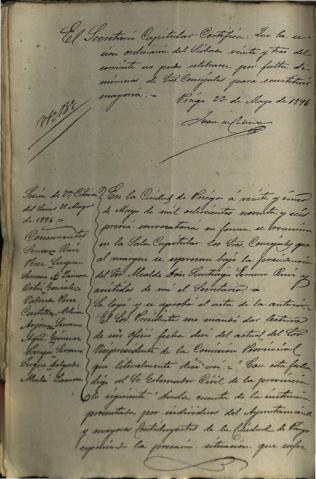 El Secretario Capitular Certifica: Que la se-
sion ordinaria del Sábado veinte y tres del
corriente no pudo celebrarse por falta de
número de Sres Concejales para constituir
mayoria.-
Priego 23 de Mayo de 1896
Sesion de 2ª Citacion
del Lunes 25 Mayo
de 1896 =
Concurrentes
Serrano Ruiz
Perez Luque
Ortiz Gonzalez
Valverde Perez
Castilla
Serrano
Gimenez
Serrano
En la Ciudad de Priego á veinte y cinco
de Mayo de mil ochocientos noventa y seis
prévia convocatoria en forma se reunieron
en la Sala Capitular los Sres. Concejales que
al margen se expresan bajo la presidencia
del Sr Alcalde Don Santiago Serrano Ruiz y
asistidos de mi el Secretario =
Se leyó y se aprobó el acta de la anterior.
El Sr Presidente me mandó dar lectura
de un oficio fecha diez del actual del Sr
Vicepresidente de la Comision Provincial
que literalmente dice asi = "Con esta fecha
digo al Sr Gobernador Civil de la provincia
lo siguiente: dada cuenta de la instancia
presentada por individuos del Ayuntamiento
y mayores Contribuyentes de la Ciudad de Priego
la precaria situacion que